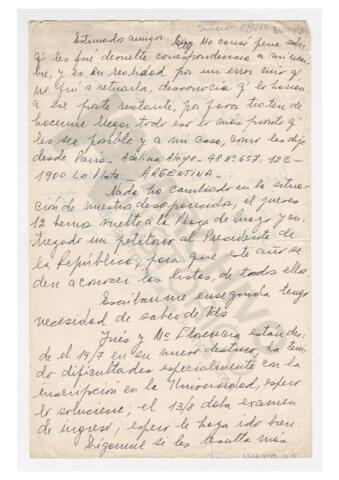 Estimados amigos: Me causó pena saber
q' les fué devuelta correspondencia a mi nom-
bre, y es en realidad por un error mío q'
no fuí a retirarla, desconocía q' lo hacían
a ese poste restante, por favor traten de
hacerme llegar todo eso lo más pronto q'
les sea posible y a mi casa, como les dije
desde París - Adelina Alaye - 48 Nº 657. 12C -
1900 La Plata - ARGENTINA.
Nada ha cambiado en la situa-
ción de nuestros desaparecidos, el jueves
12 hemos vuelto a la Plaza de Mayo y en-
tregado un petitorio al Presidente de
la República, para que este año se
den a conocer las listas, de todos ellos
Escríbanme enseguida tengo
necesidad de saber de Uds
Inés y Mª Florencia están des-
de el 19/7 en su nuevo destino, ha teni-
do dificultades especialmente con la
inscripción en la Universidad, espero
lo solucione; el 13/8 daba examen
de ingreso, espero le haya ido bien.
Díganme si les resulta más